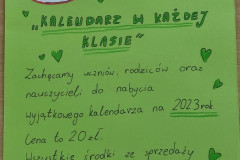 „KALENDARZ W KAŻDEJ
KLASIE"
Zachęcamy uczniów, rodziców oraz
nauczycieli do nabycia
wyjątkowego kalendarza na 2023 rok
Cena to 20 zł.
Wszystkie środki ze sprzedaży